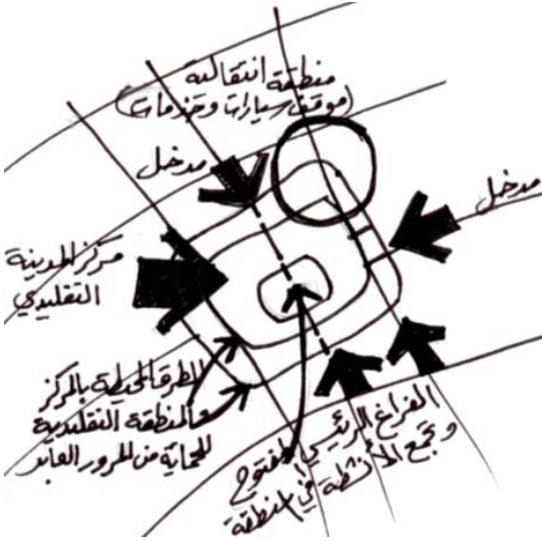 منطقة انتقالية
(موقف سيارات وخدمات)
مدخل
مدخل
مركز المدينة
التقليدي
الطرق المحيطة بالمركز
والمنطقة التقليدية
للحماية من المرور العابر
الفراغ الرئيسي المفتوح
وتجمع الأنشطة في المنطقة